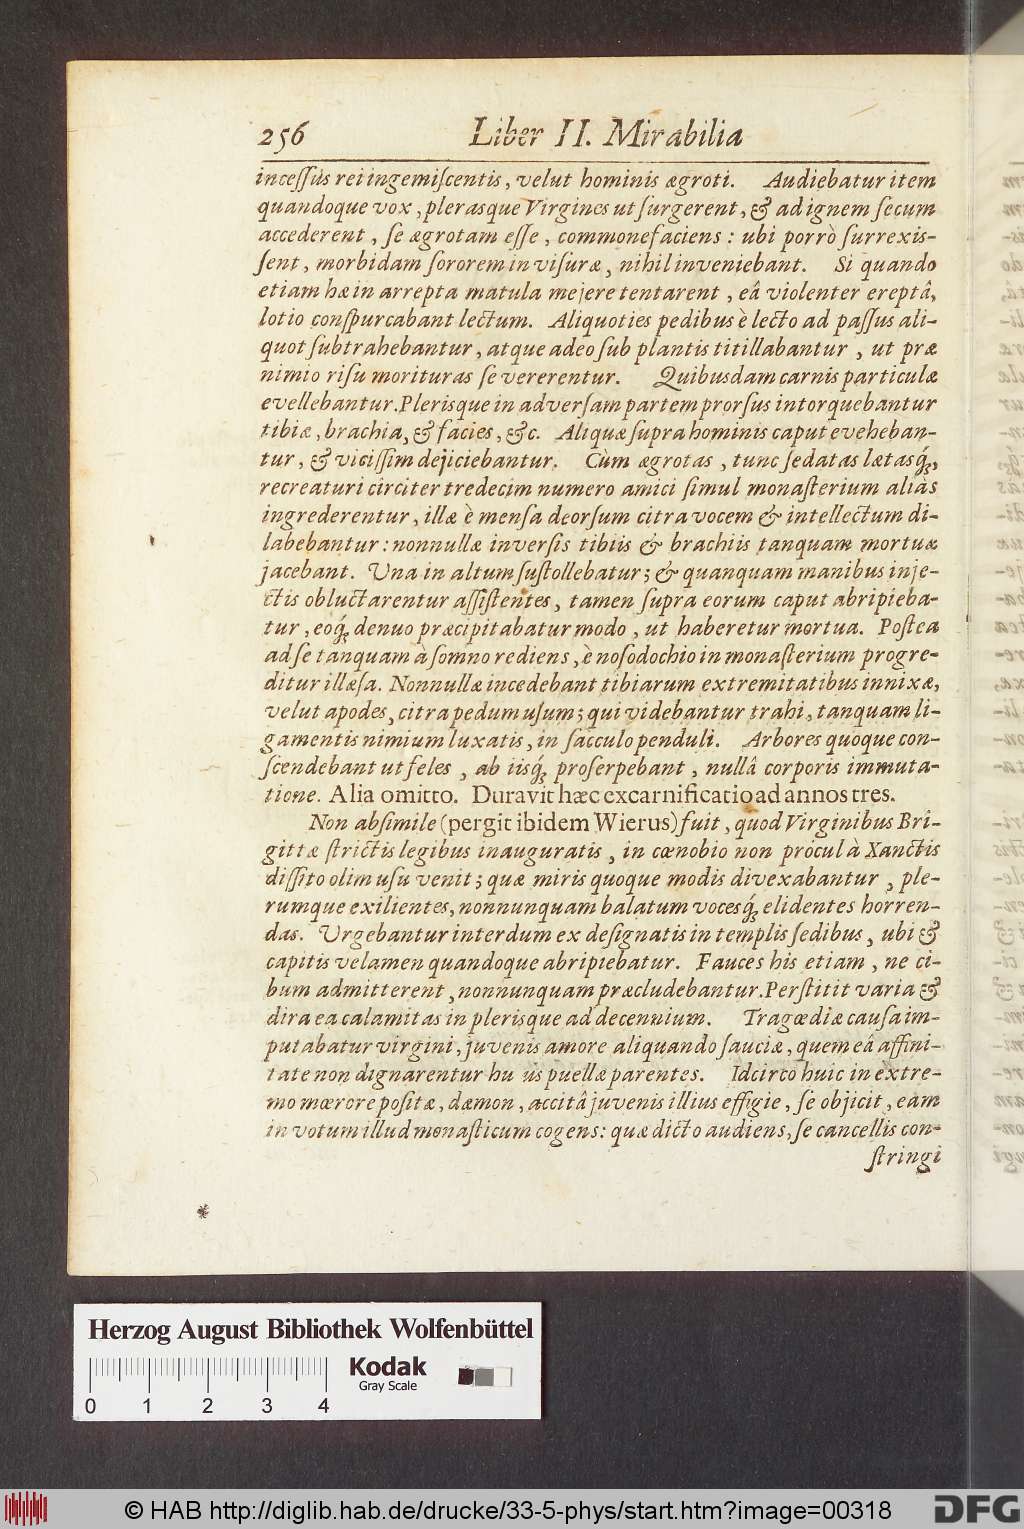 256 Liber II. Mirabilia
incessùs rei ingemiscentis, velut hominis ægroti. Audiebatur item
quandoque vox, plerasque Virgines ut surgerent, & ad ignem secum
accederent, se ægrotam esse, commonefaciens: ubi porrò surrexis-
sent, morbidam sororem invisuræ, nihil inveniebant. Si quando
etiam hæ in arrepta matula mejere tentarent, eâ violenter ereptâ,
lotio conspurcabant lectum. Aliquoties pedibus è lecto ad passus ali-
quot subtrahebantur, atque adeo sub plantis titillabantur, ut præ
nimio risu morituras se vererentur. Quibusdam carnis particulæ
evellebantur. Plerisque in adversam partem prorsus intorquebantur
tibiæ, brachia, & facies, &c. Aliquæ supra hominis caput evehеban-
tur, & vicissim dejiciebantur. Cùm ægrotas, tunc sedatas lætasq́;
recreaturi circiter tredecim numero amici simul monasterium aliàs
ingrederentur, illæ è mensa deorsum citra vocem & intellectum di-
labebantur: nonnullæ inversis tibiis & brachiis tanquam mortuæ
jacebant. Una in altum sustollebatur; & quanquam manibus inje-
ctis obluctarentur assistentes, tamen supra eorum caput abripieba-
tur, eoq́; denuo præcipitabatur modo, ut haberetur mortua. Postea
ad se tanquam à somno rediens, è nosodochio in monasterium progre-
ditur illæsa. Nonnullæ incedebant tibiarum extremitatibus innixæ,
velut apodes, citra pedum usum; qui videbantur trahi, tanquam li-
gamentis nimium luxatis, in sacculo penduli. Arbores quoque con-
scendebant ut feles, ab iisq́; proserpebant, nullâ corporis immuta-
tione. Alia omitto. Duravit hæc excarnificatio ad annos tres.
Non absimile (pergit ibidem Wierus) fuit, quod Virginibus Bri-
gittæ strictis legibus inauguratis, in cœnobio non procul à Xanctis
dissito olim usu venit; quæ miris quoque modis divexabantur, ple-
rumque exilientes, nonnunquam balatum vocesq́; elidentes horren-
das. Urgebantur interdum ex designatis in templis sedibus, ubi &
capitis velamen quandoque abripiebatur. Fauces his etiam, ne ci-
bum admitterent, nonnunquam præcludebantur. Perstitit varia &
dira ea calamitas in plerisque ad decennium. Tragœdiæ causa im-
putabatur virgini, juvenis amore aliquando sauciæ, quem eâ affini-
tate non dignarentur hu us puellæ parentes. Idcirco huic in extre-
mo mœrore positæ, dæmon, accitâ juvenis illius effigie, se objicit, eam
in votum illud monasticum cogens: quæ dicto audiens, se cancellis con-
stringi
Herzog August Bibliothek Wolfenbüttel
Kodak
Gray Scale
0 1 2 3 4
© HAB http://diglib.hab.de/drucke/33-5-phys/start.htm?image=00318
DFG